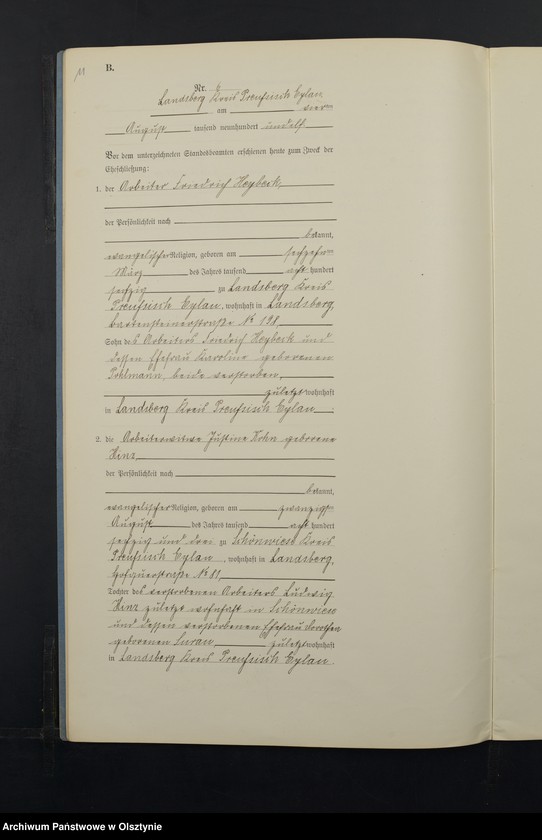 11
B.
Nr. 6
Landsberg Kreis Preußisch Eylau,
am vier
August tausend neunhundert und elf
Vor dem unterzeichneten Standesbeamten erschienen heute zum Zweck der
Eheschließung:
1. der Arbeiter Friedrich Heybeck,
der Persönlichkeit nach
bekannt,
evangelischer Religion, geboren am sechzehn
März des Jahres tausend acht hundert
sechzig zu Landsberg Kreis
Preußisch Eylau, wohnhaft in Landsberg,
Bartensteinerstraße № 198,
Sohn des Arbeiters Friedrich Heybeck und
dessen Ehefrau Karoline geborenen
Pohlmann, beide verstorben,
zuletzt wohnhaft
in Landsberg Kreis Preußisch Eylau.
2. die Arbeiterwitwe Justine Kohn geborene
Hinz
der Persönlichkeit nach
bekannt,
evangelischer Religion, geboren am zwanzigsten
August des Jahres tausend acht hundert
sechzig und drei zu Schönwiese Kreis
Preußisch Eylau, wohnhaft in Landsberg,
№ 81,
Tochter des verstorbenen Arbeiters Ludwig
Hinz zuletzt wohnhaft in Schönwiese
und dessen verstorbenen Ehefrau Dorothea
geborenen zuletzt wohnhaft
in Landsberg Kreis Preußisch Eylau.
Archiwum Państwowe w Olsztynie